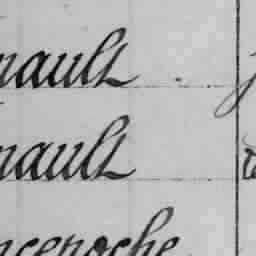 nault
nault
nceroche